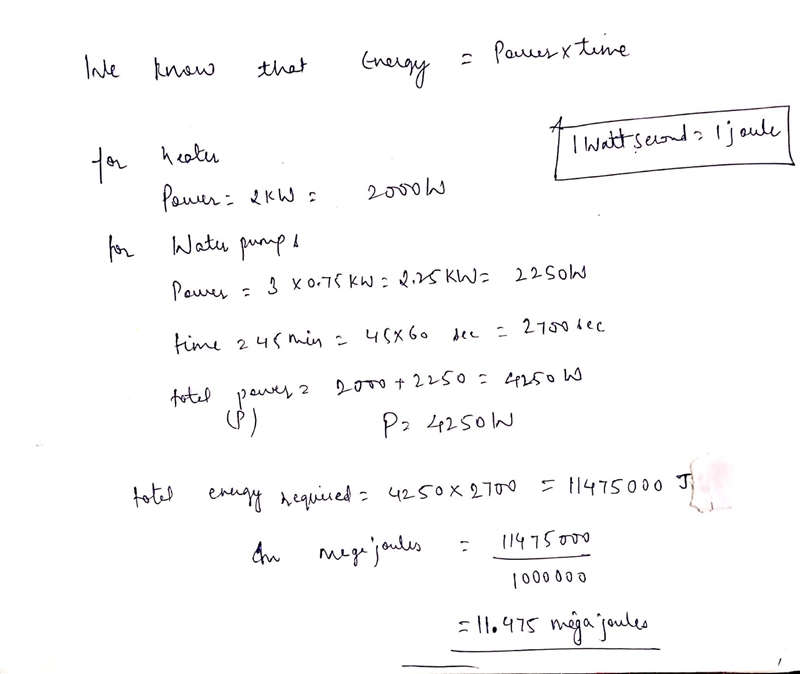 We know that Energy = Power x time
1 Watt second = 1 joule
for heater
Power = 2KW = 2000W
for Water pumps
Power = 3 x 0.75 KW = 2.25 KW = 2250W
time = 45 min = 45x60 sec = 2700 sec
total power = 2000 + 2250 = 4250 W
(P) P = 4250W
total energy required = 4250 x 2700 = 11475000 J
In mega joules = 11475000
1000000
= 11.475 mega joules